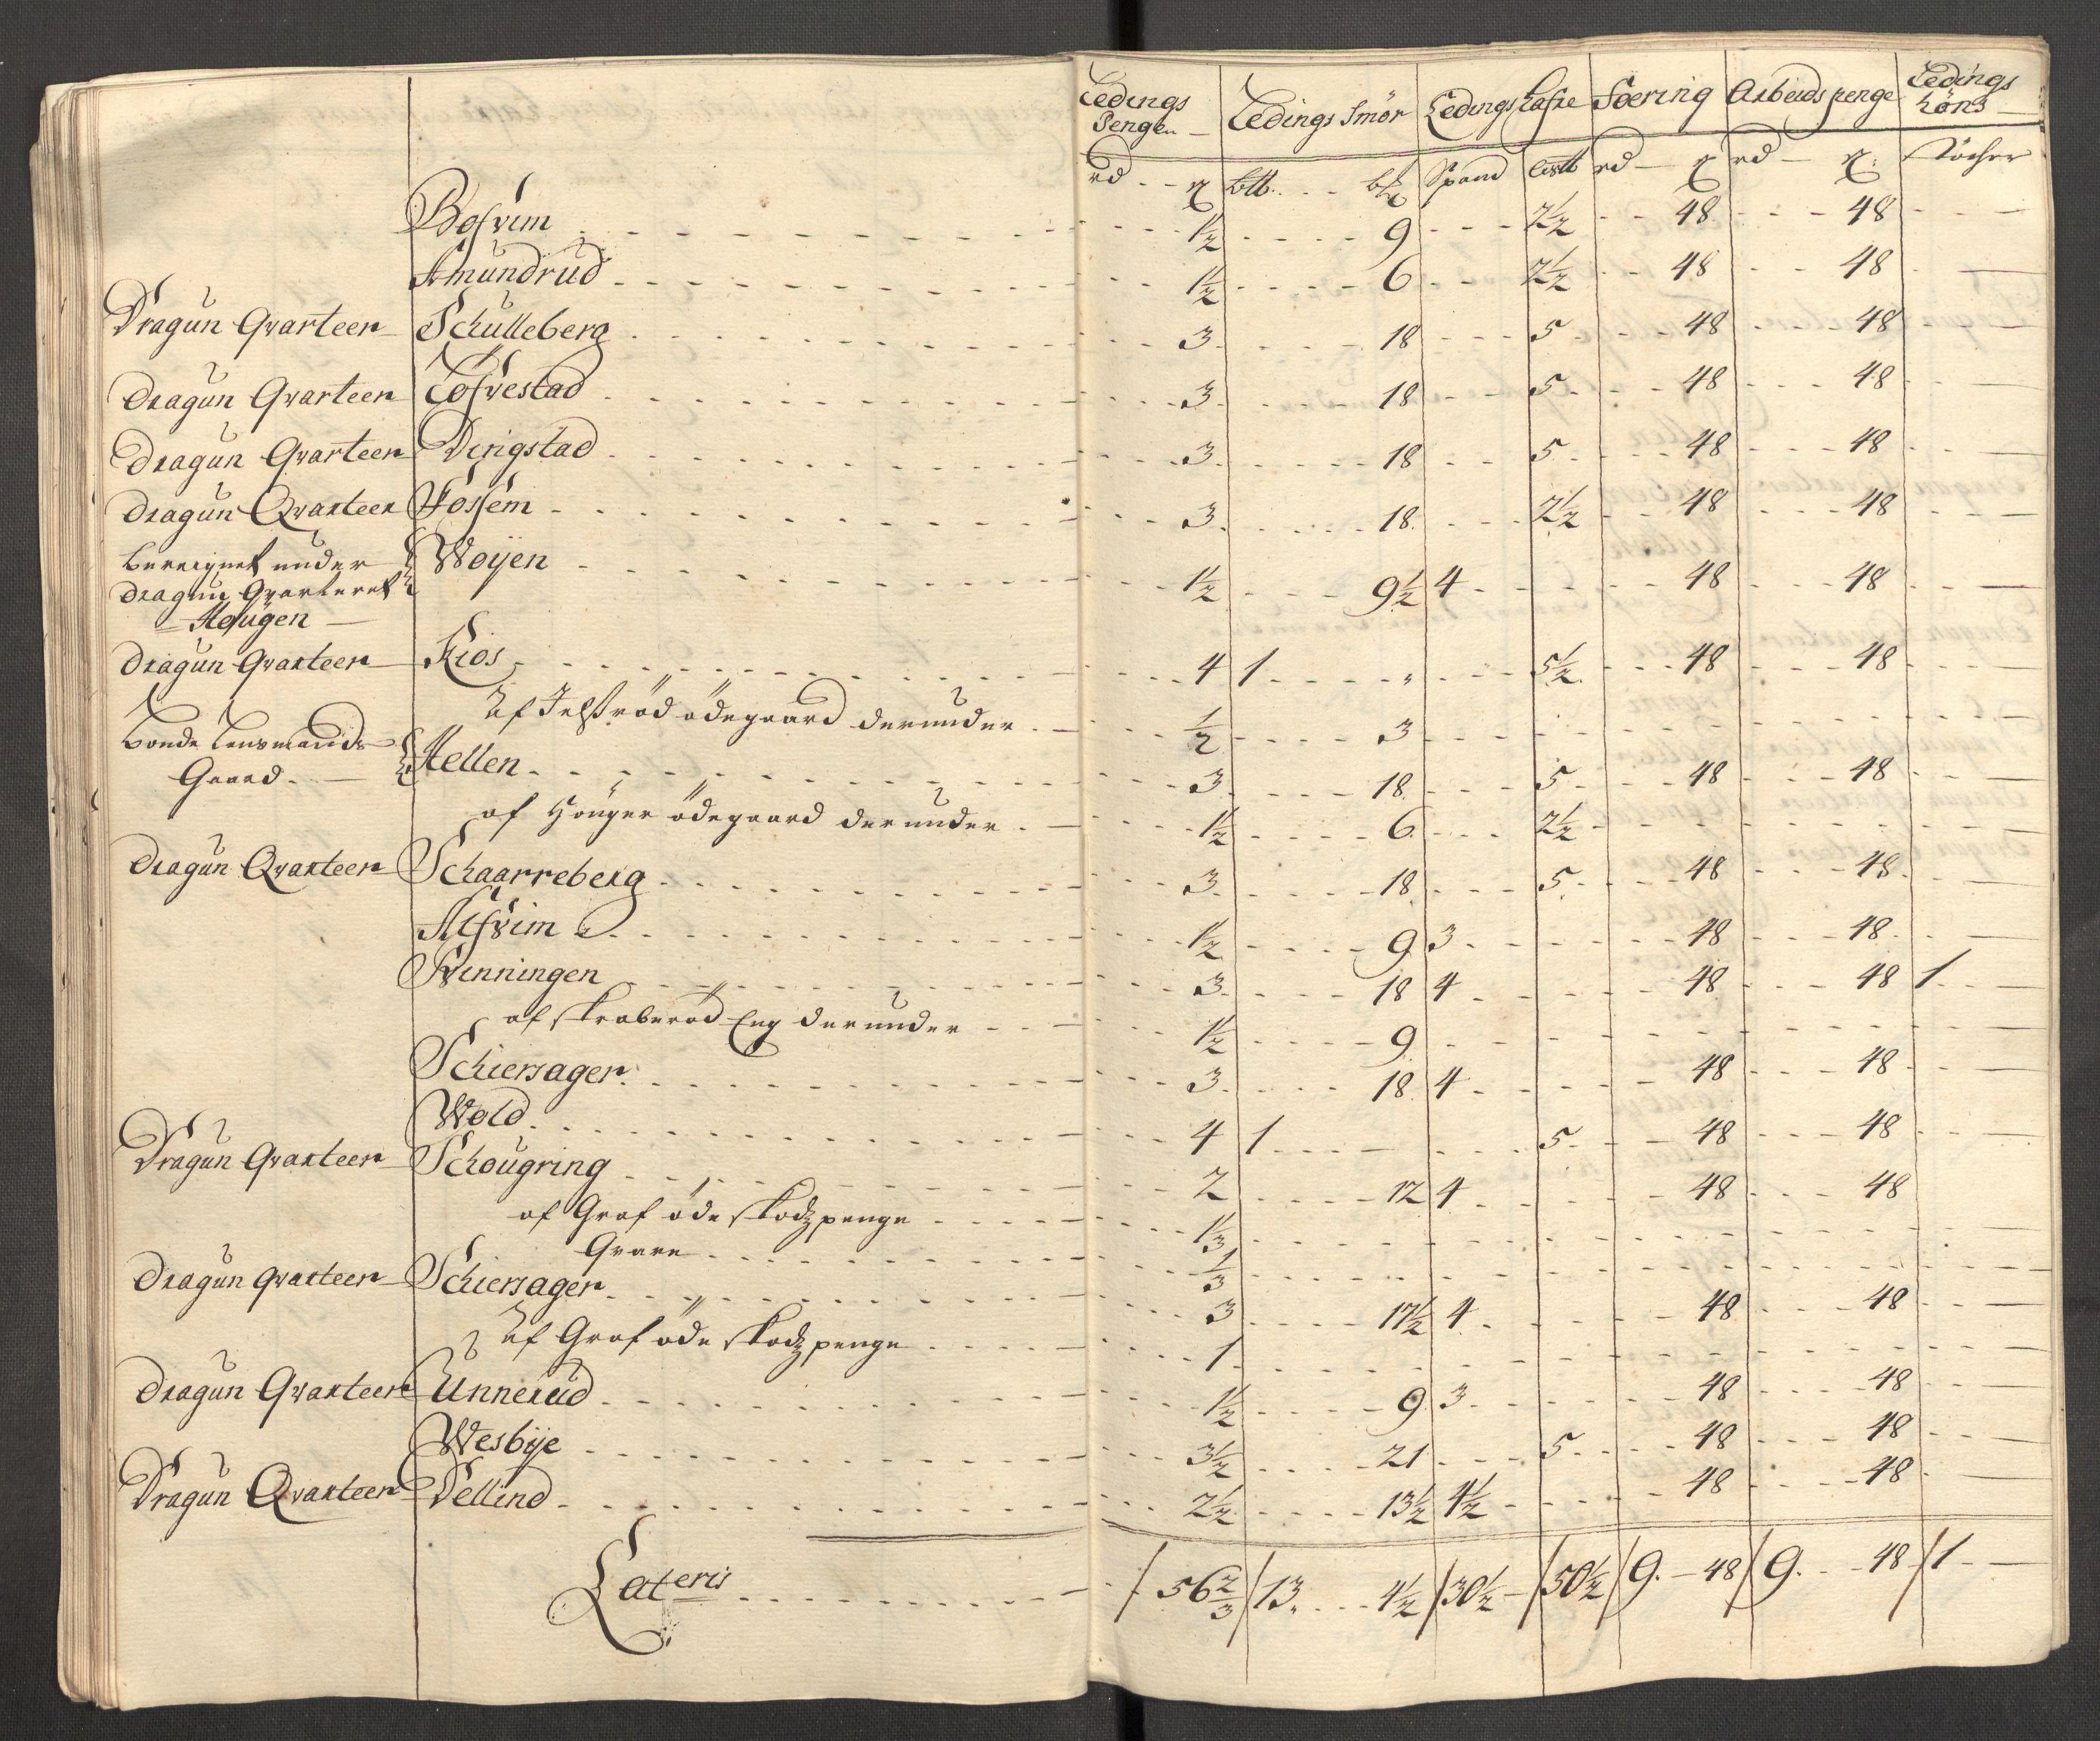 Ledings Penge Ledings Smör Ledings Hafre Foering Arbeids penge Ledings Höns
rd ß b℔ Spand rd ß rd ß
Bosvim 1½ 9 2½ 48 48
Amundrud 1½ 6 2½ 48 48
Dragun Qvarteer Schulleberg 3 18 5 48 48
Dragun Qvarteer Tosvestad 3 18 5 48 48
Dragun Qvarteer Deristad 3 18 5 48 48
Dragun Qvarteer Fossem 3 18 2½ 48 48
bereignet under Woÿen 1½ 9½ 4 48 48
dragun Qvarteret
Hougen
Dragun Qvarteer Kios 4 1 5½ 48 48
Af ödegaard derunder ½ 3
bonde Lensmands Hellen 3 18 5 48 48
Gaard
af Höuger ödegaard derunder 1½ 6 2½
Dragun Qvarteer Schaarreberg 3 18 5 48 48
Alsvim 1½ 9 3 48 48
Svenningen 3 18 4 48 48 1
af skraberöd Eng derunder 1½ 9
Schiersager 3 18 4 48 48
Wold 4 1 5 48 48
Dragun Qvarteer Schougring 2 12 4 48 48
af Graf öde skodz penge 1⅓
Qvarn ⅓
Dragun Qvarteer Schiersager 3 17½ 4 48 48
Af Graf öde skodz penge 1
Dragun Qvarteer Unnerud 1½ 9 3 48 48
Wesbÿe 3½ 21 5 48 48
Dragun Qvarteer Dellind 2½ 13½ 4½ 48 48
Lateris 56⅔ 13 4½ 30½ 50½ 9 48 9 48 1